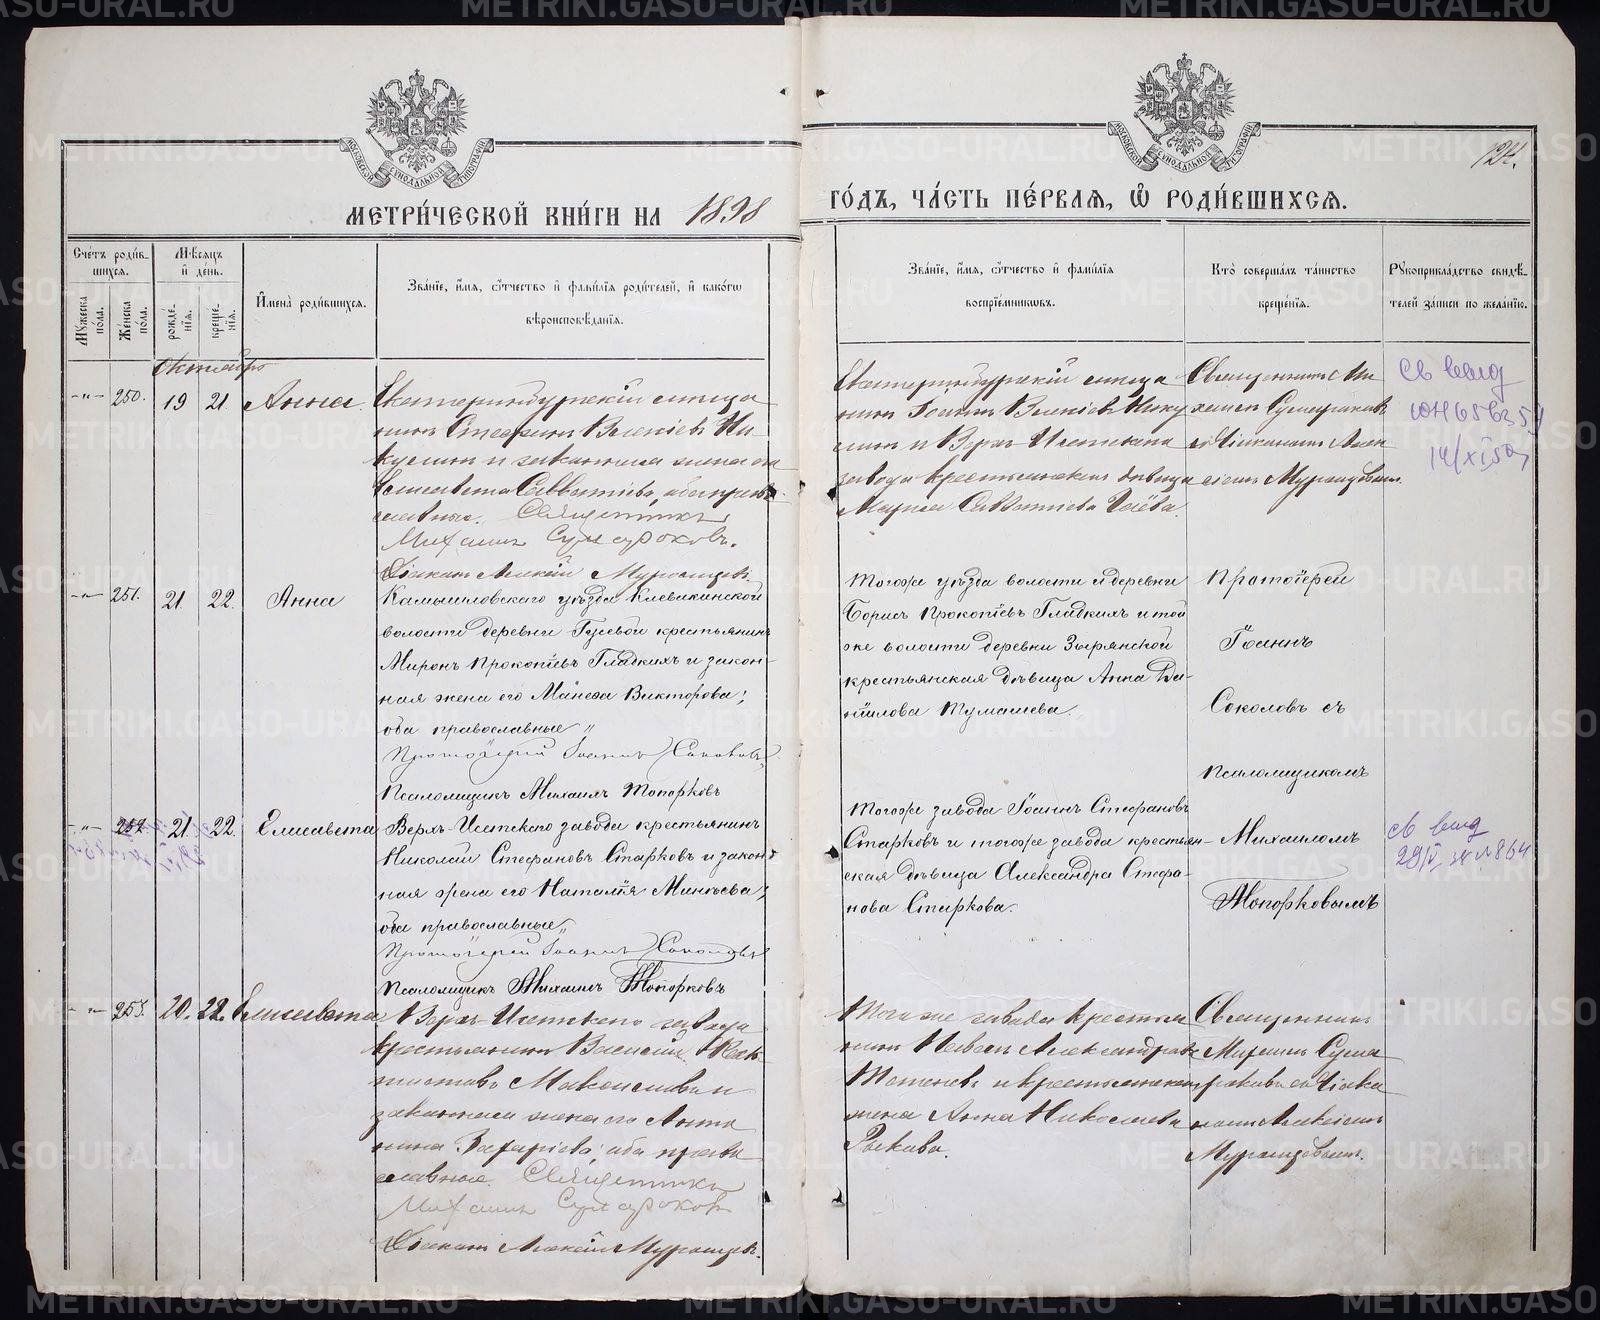 МЕТРИ́ЧЕСКОЙ КНИ́ГИ НА 1898
ГО́ДЪ, ЧА́СТЬ ПЕ́РВАЯ, Ѡ҆ РОДИ́ВШИХСЯ.
124.
Сче́тъ роди́в-
шихся.
Мꙋжеска пола.
Же́нска пола.
Мѣсяцъ и҆ де́нь.
рожде́-
нія.
креще́-
нія.
И҆мена̀ роди́вшихся.
Зва́нїе, и҆́мя, ѻ҆́тчество и҆ фами́лїя роди́телей, и҆ како́гѡ
вѣроисповѣ́данїя.
Зва́нїе, и҆́мя, ѻ҆́тчество и҆ фами́лїя
воспрїе́мниковъ.
Кто̀ соверша́лъ та́инство
креще́нїя.
Рꙋкоприкла́дство свидѣ́-
телей за́писи по жела́нїю.
Октябрь
-"- 250. 19 21. Анна.
Екатеринбургскій мѣща
нинъ Стефанъ Василіевъ Ни
кулинъ и законная жена его
Елисавета Савватіева, оба право
славные. Священникъ
Михаилъ Сумароковъ.
Діаконъ Алексій Мурашцевъ
Екатеринбургскій мѣща
нинъ Іоаннъ Василіевъ Нику
линъ и Верхъ-Исетскаго
завода крестьянская дѣвица
Марія Савватіева Гаёва.
Священникъ Ми
хаилъ Сумароковъ
съ Діакономъ Алек
сіемъ Мурашцевымъ.
св выд
ЮН 65635
14/XI 50
-"- 251. 21. 22. Анна
Камышловскаго уѣзда Клевакинской
волости деревни Гусевой крестьянинъ
Миронъ Прокопіевъ Гладкихъ и закон-
ная жена его Манева Викторова;
оба православные „
Протоіерей Іоаннъ Соколовъ,
Псаломщикъ Михаилъ Топорковъ
Тогоже уѣзда волости и деревни
Борисъ Прокопіевъ Гладкихъ и той
же волости деревни Зырянской
крестьянская дѣвица Анна Да-
нiилова Тумашева.
Протоіерей
Іоаннъ
Соколовъ съ
Псаломщикомъ
Михаиломъ
Топорковымъ
-"- 252. 21. 22. Елисавета
Верхъ-Исетскаго завода крестьянинъ
Николай Стефановъ Старковъ и закон-
ная жена его Наталія Минѣева;
оба православные„
Протоіерей Іоаннъ Соколовъ
Псаломщикъ Михаилъ Топорковъ
Тогоже завода Іоаннъ Стефановъ
Старковъ и тогоже завода крестьян-
ская дѣвица Александра Стефа-
нова Старкова.
св выд
-"- 253. 20. 22. Елисавета
Верхъ-Исетскаго завода
крестьянинъ Василій
Максимовъ и
законная жена его Анто
нина Захаріева, оба право
славные. Священникъ
Михаилъ Сумароковъ
Діаконъ Алексій Мурашцевъ.
Того же завода крестья
нинъ Павелъ Александровъ
и крестьянская
жена Анна Николаева
Рыкова.
Священникъ
Михаилъ Сума
роковъ съ Діако
номъ Алексіемъ
Мурашцевымъ.
METRIKI.GASO-URAL.RU